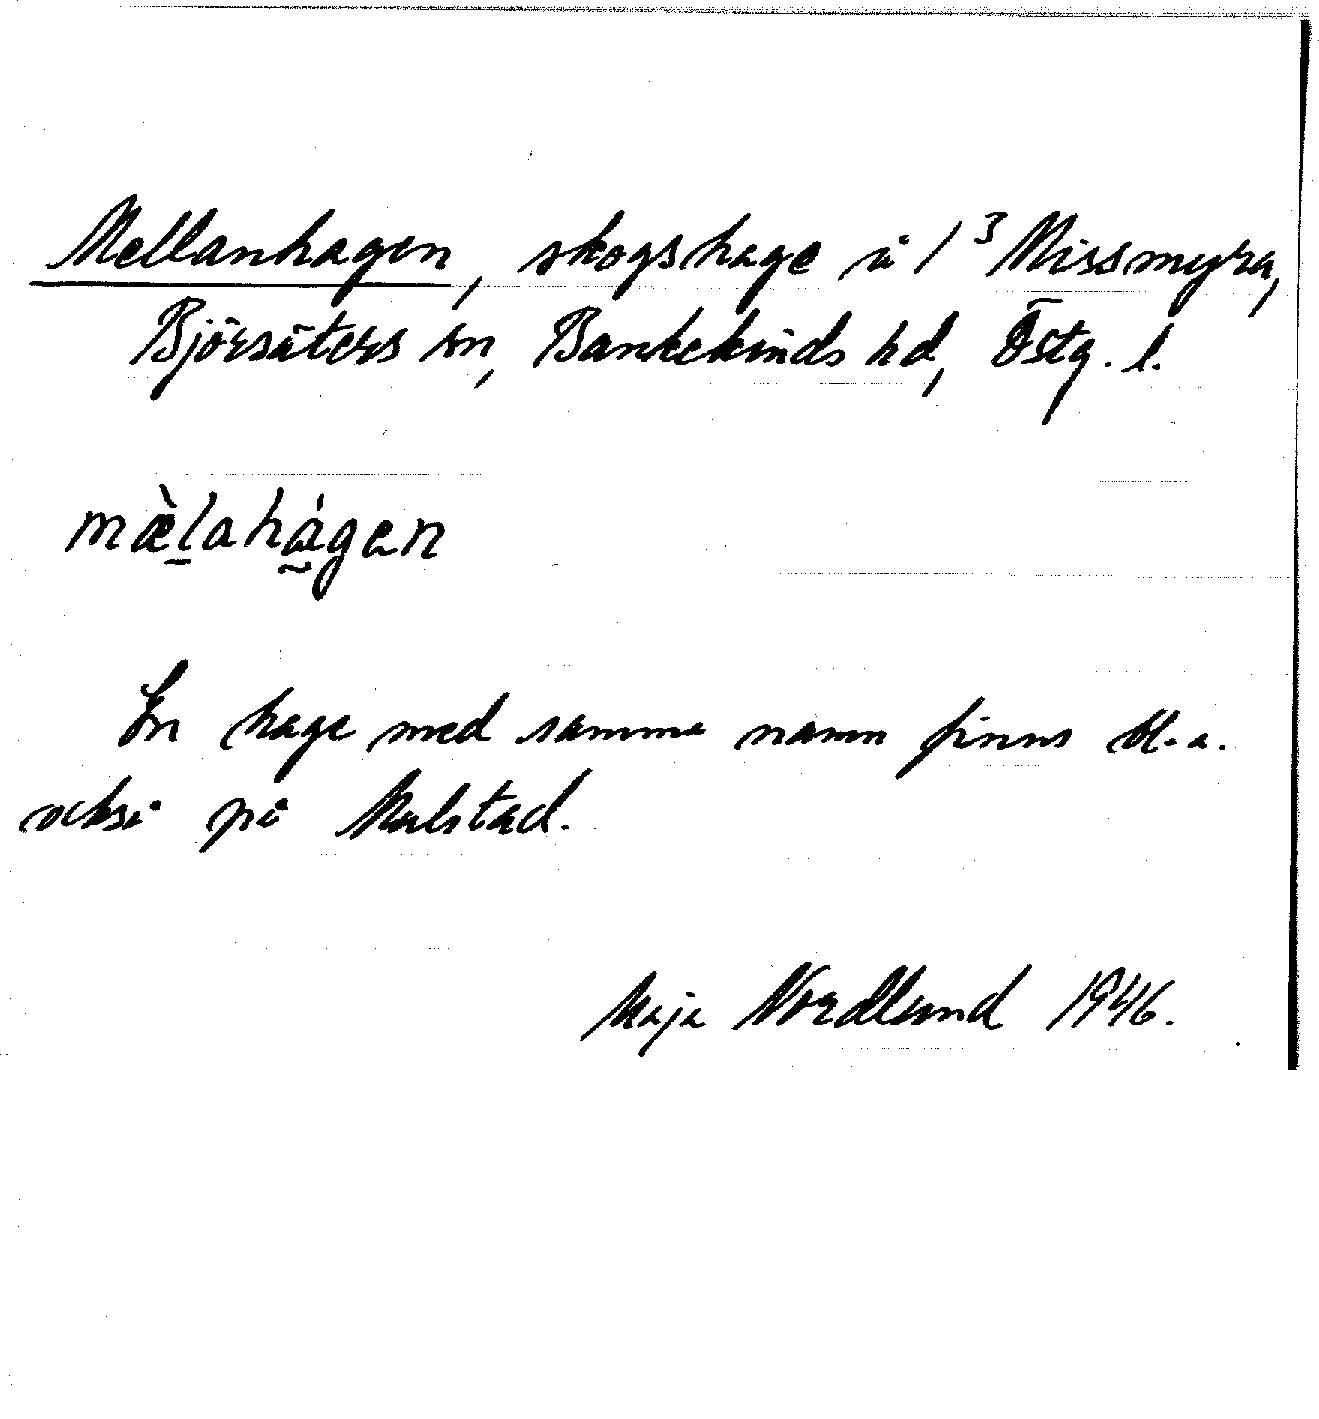 Mellanhagen, skogshage å 1³ Missmyra,
Björsäters sn, Bankekinds hd, Östg. l.
mæ̀l̠ahá̰gen
En hage med samma namn finns bl. a.
också på Mulstad.
Maja Nordlund 1946.